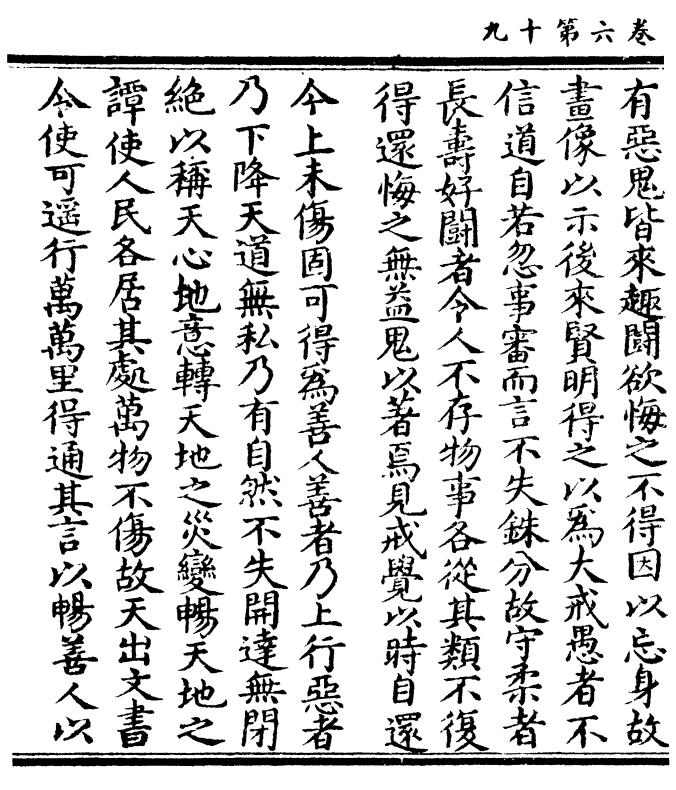 卷六第十九
有惡鬼皆來趣鬪欲悔之不得因以忘身故
畫像以示後來賢明得之以為大戒愚者不
信道自若忽事審而言不失銖分故守柔者
長壽好鬪者令人不存物事各從其類不復
得還悔之無益鬼以著焉見戒覺以時自還
今上未傷固可得為善人善者乃上行惡者
乃下降天道無私乃有自然不失開達無閉
絕以稱天心地意轉天地之災變暢天地之
譚使人民各居其處萬物不傷故天出文書
令使可遥行萬萬里得通其言以暢善人以